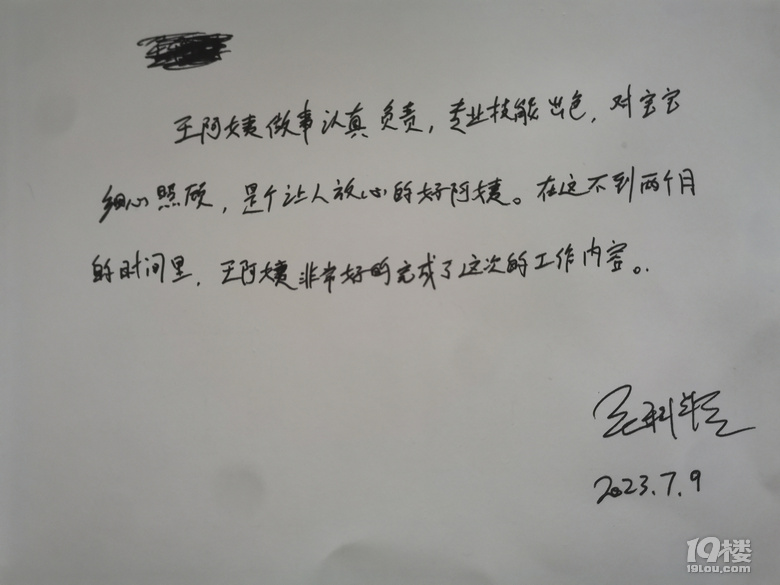 王阿姨做事认真负责，专业技能出色，对宝宝
细心照顾，是个让人放心的好阿姨。在这不到两个月
的时间里，王阿姨非常好的完成了这次的工作内容。
2023.7.9
19楼
19lou.com